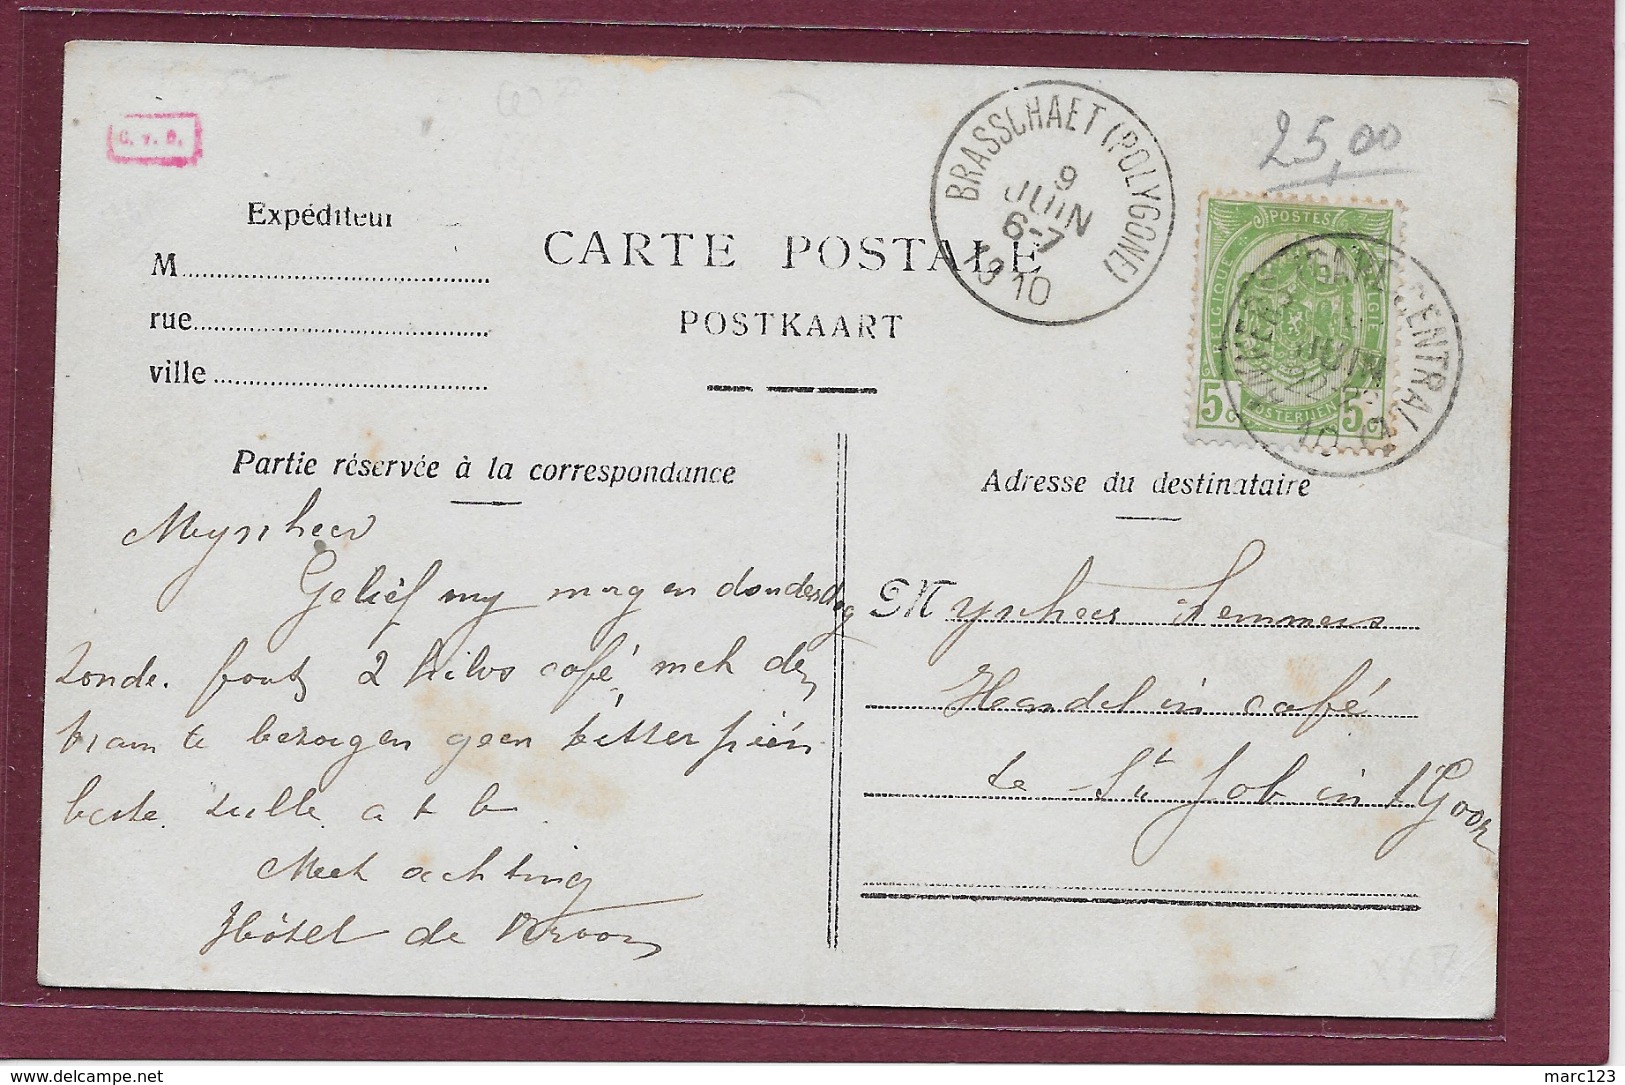 C. v. D.
25,00
BRASSCHAET (POLYGONE)
9
JUIN
6-7
1910
Expéditeur
M
rue
ville
CARTE POSTALE
POSTKAART
POSTES
BELGIQUE BELGIË
POSTERIJEN
5c 5c
ANVERS (GARE CENTRALE)
JUIN
Partie réservée à la correspondance
Adresse du destinataire
Mynheer
Gelief my morgen donderdag
zonder fout 2 kilos café met den
tram te bezorgen geen
beste zulle a t b
Met achting
Hôtel de
Mynheer Lemmens
Handel in café
te St Job in t'Goor
marc123
delcampe.net